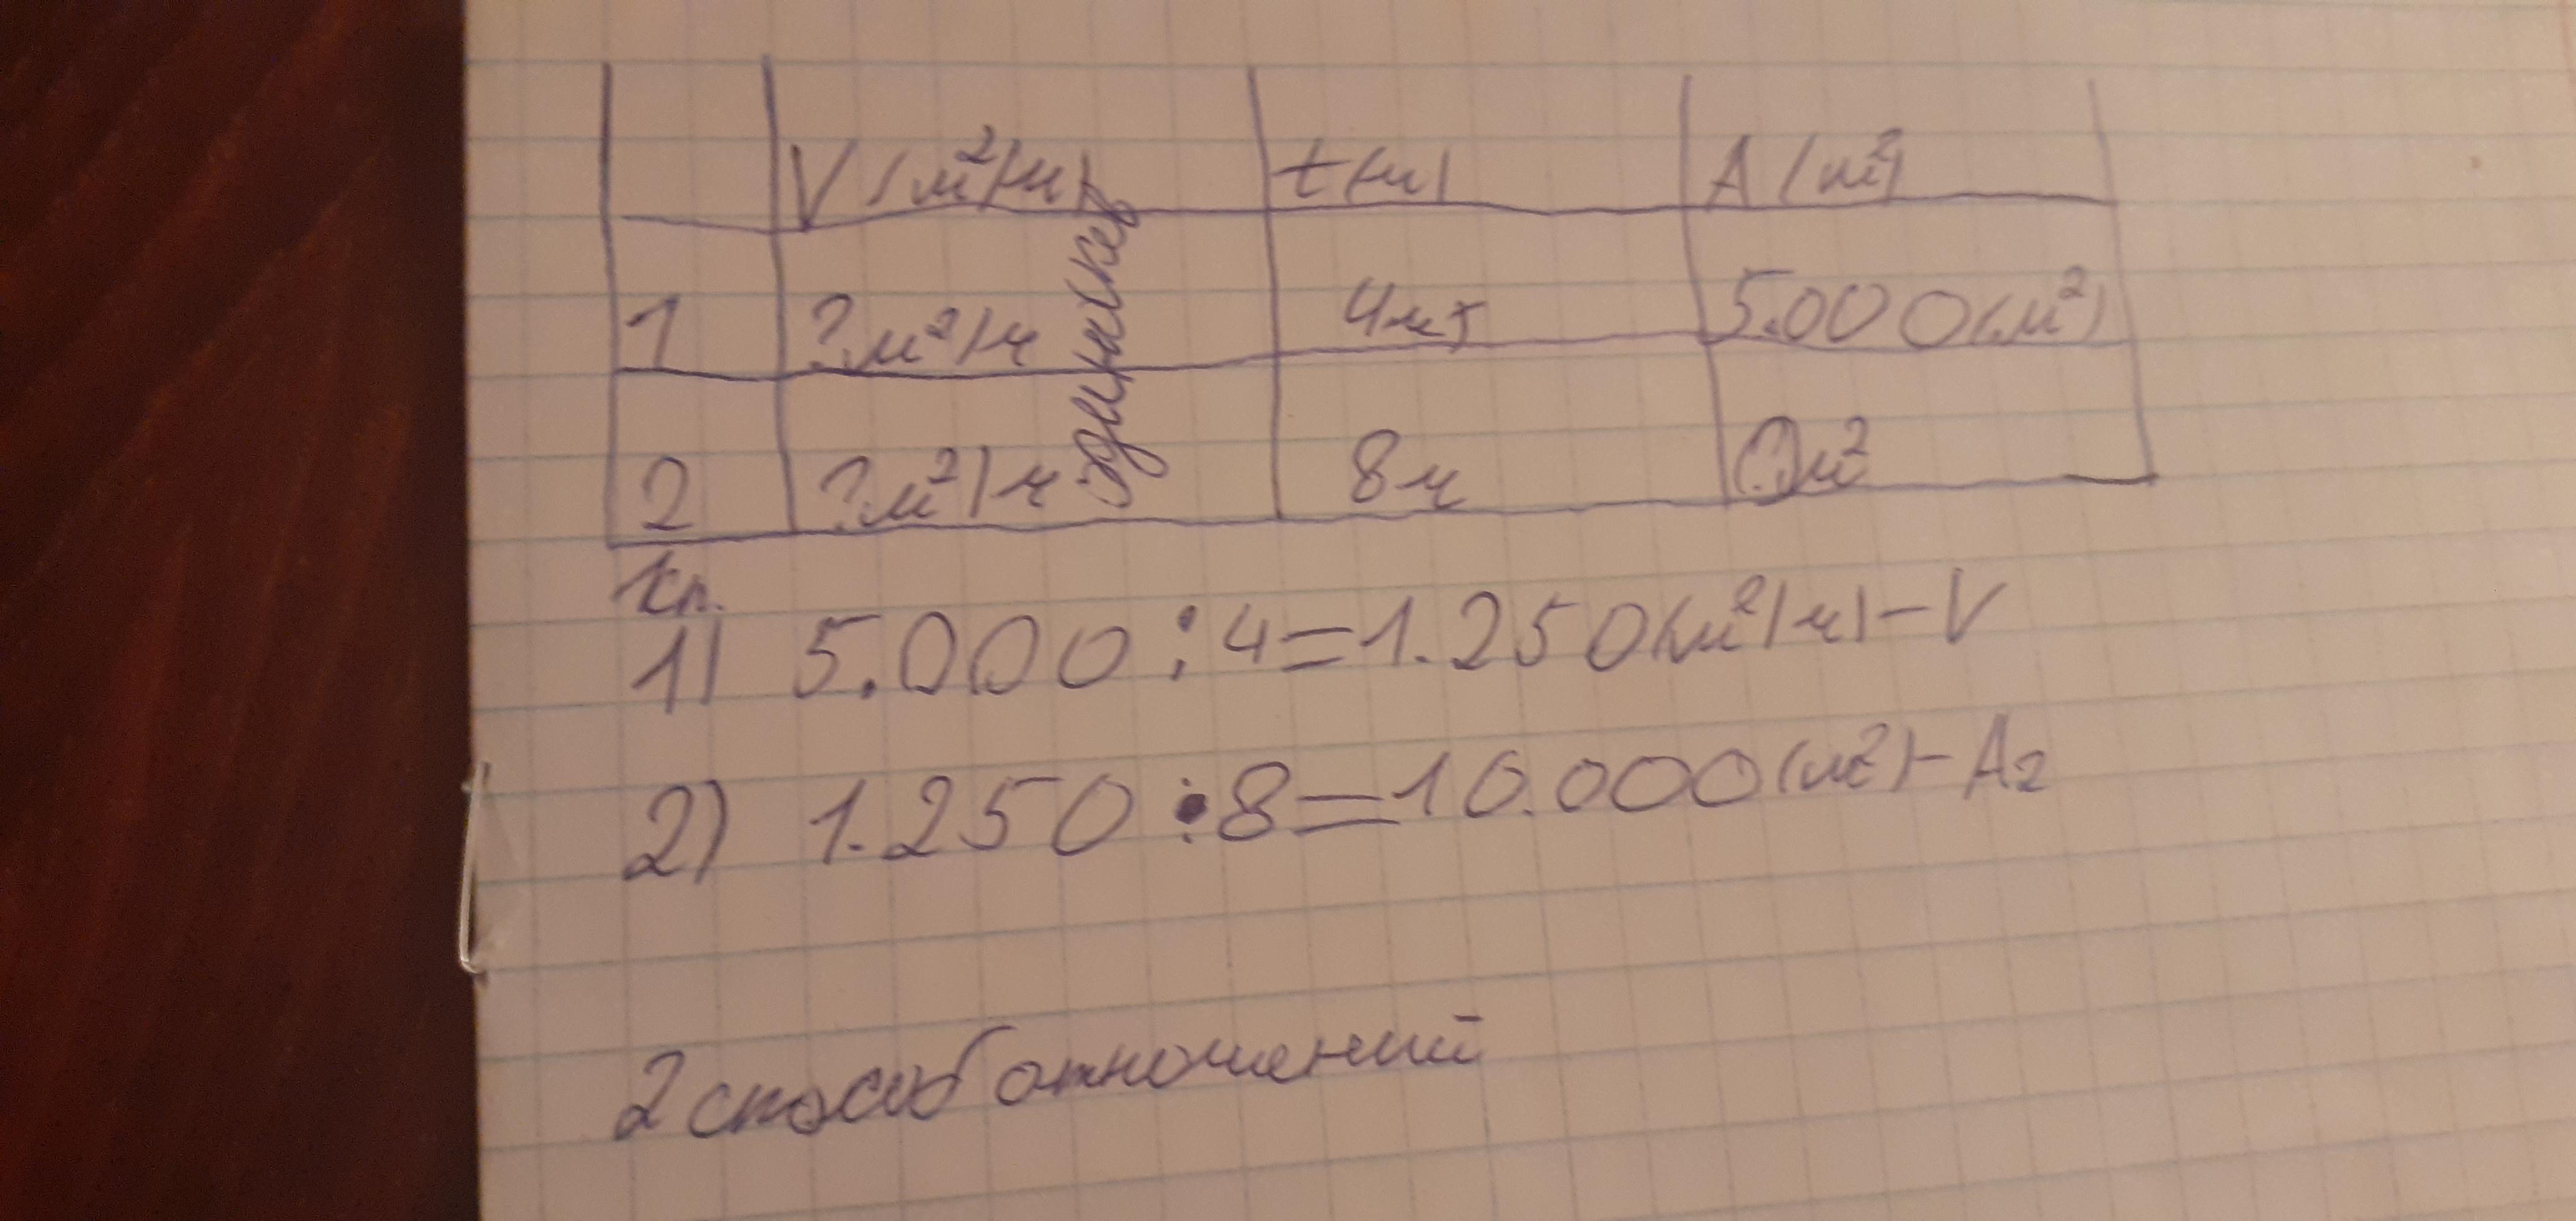 V (м²/ч) t (ч) A (м²)
1 ?м²/ч 4ч 5.000 (м²)
одинаков
2 ?м²/ч 8ч ?м²
1сп.
1) 5.000 : 4 = 1.250 (м²/ч) - V
2) 1.250 : 8 = 10.000 (м²) - A₂
2 способ отношений